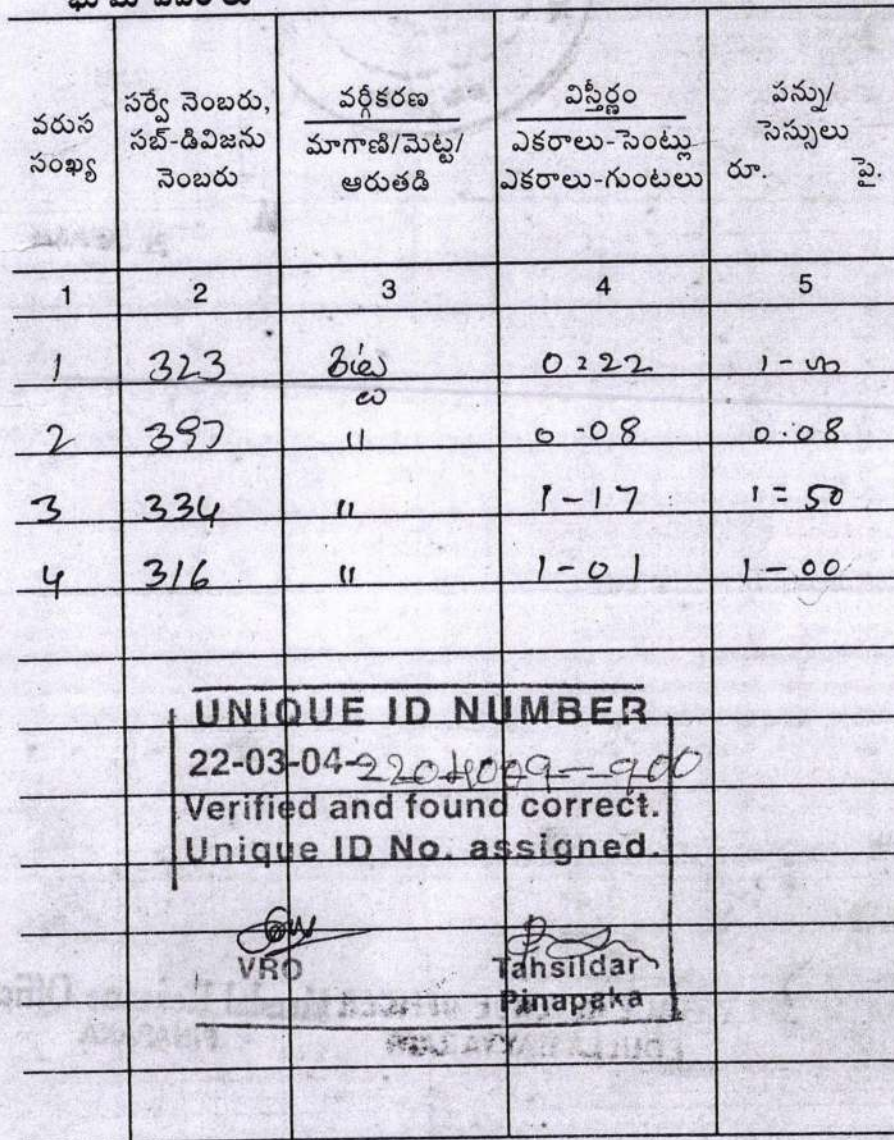 భూమి వివరాలు
వరుస సంఖ్య
సర్వే నెంబరు, సబ్-డివిజను నెంబరు
వర్గీకరణ
మాగాణి/మెట్ట/ఆరుతడి
విస్తీర్ణం
ఎకరాలు-సెంట్లు
ఎకరాలు-గుంటలు
పన్ను/సెస్సులు
రూ. పై.
1 2 3 4 5
1 323 0:22
2 397 " 0-08 0.08
3 334 " 1-17 1=50
4 316 " 1-01 1-00
UNIQUE ID NUMBER
22-03-04-
Verified and found correct.
Unique ID No. assigned.
VRO Tahsildar
Pinapaka